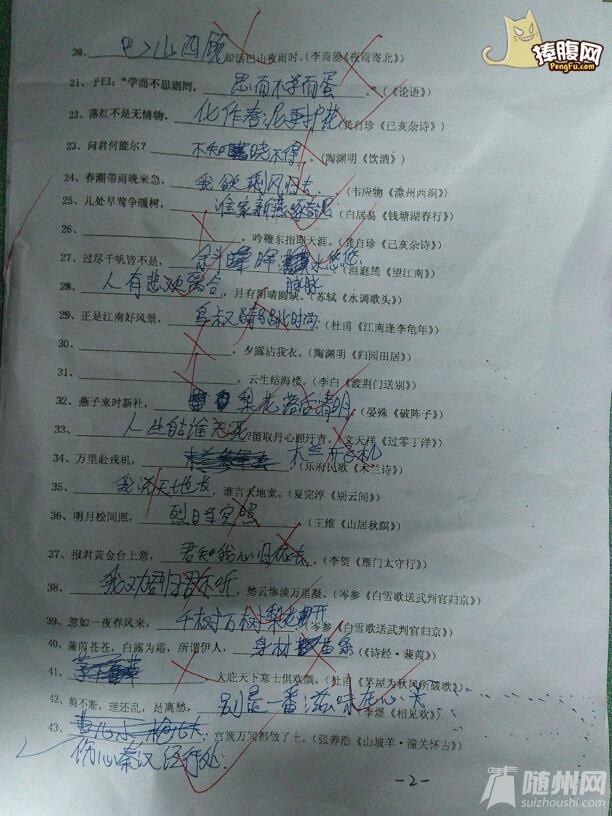 捧腹网
PengFu.com
20、巴山西顾知话巴山夜雨时。(李商隐《夜雨寄北》)
21、子曰:“学而不思则罔,思而不学而蛋。”(《论语》)
22、落红不是无情物,化作春泥更护花(龚自珍《己亥杂诗》)
23、问君何能尔?不知晓不得。(陶渊明《饮酒》)
24、春潮带雨晚来急,我欲乘风归去。(韦应物《滁州西涧》)
25、几处早莺争暖树,谁家新燕啄春泥(白居易《钱塘湖春行》)
26、,吟鞭东指即天涯。(龚自珍《己亥杂诗》)
27、过尽千帆皆不是,余斜晖脉脉水悠悠(温庭筠《望江南》)
28、人有悲欢离合,月有阴晴圆缺。(苏轼《水调歌头》)
29、正是江南好风景,(杜甫《江南逢李龟年》)
30、,夕露沾我衣。(陶渊明《归园田居》)
31、,云生结海楼。(李白《渡荆门送别》)
32、燕子来时新社,梨花落后清明(晏殊《破阵子》)
33、人生自谁无死?留取丹心照汗青。(文天祥《过零丁洋》)
34、万里赴戎机,木兰开飞机(乐府民歌《木兰诗》)
35、,谁言天地宽。(夏完淳《别云间》)
36、明月松间照,烈日当空照(王维《山居秋暝》)
37、报君黄金台上意,君知我心归你去。(李贺《雁门太守行》)
38、我劝君归君不听,愁云惨淡万里凝。(岑参《白雪歌送武判官归京》)
39、忽如一夜春风来,千树万树梨花开(岑参《白雪歌送武判官归京》)
40、蒹葭苍苍,白露为霜,所谓伊人,身材苗条(《诗经·蒹葭》)
41、,大庇天下寒士俱欢颜。(杜甫《茅屋为秋风所破歌》)
42、剪不断,理还乱,是离愁,别是一番滋味在心头(李煜《相见欢》)
43、伤心秦汉经行处,宫阙万间都做了土。(张养浩《山坡羊·潼关怀古》)
-2-
随州网
suizhoushi.com